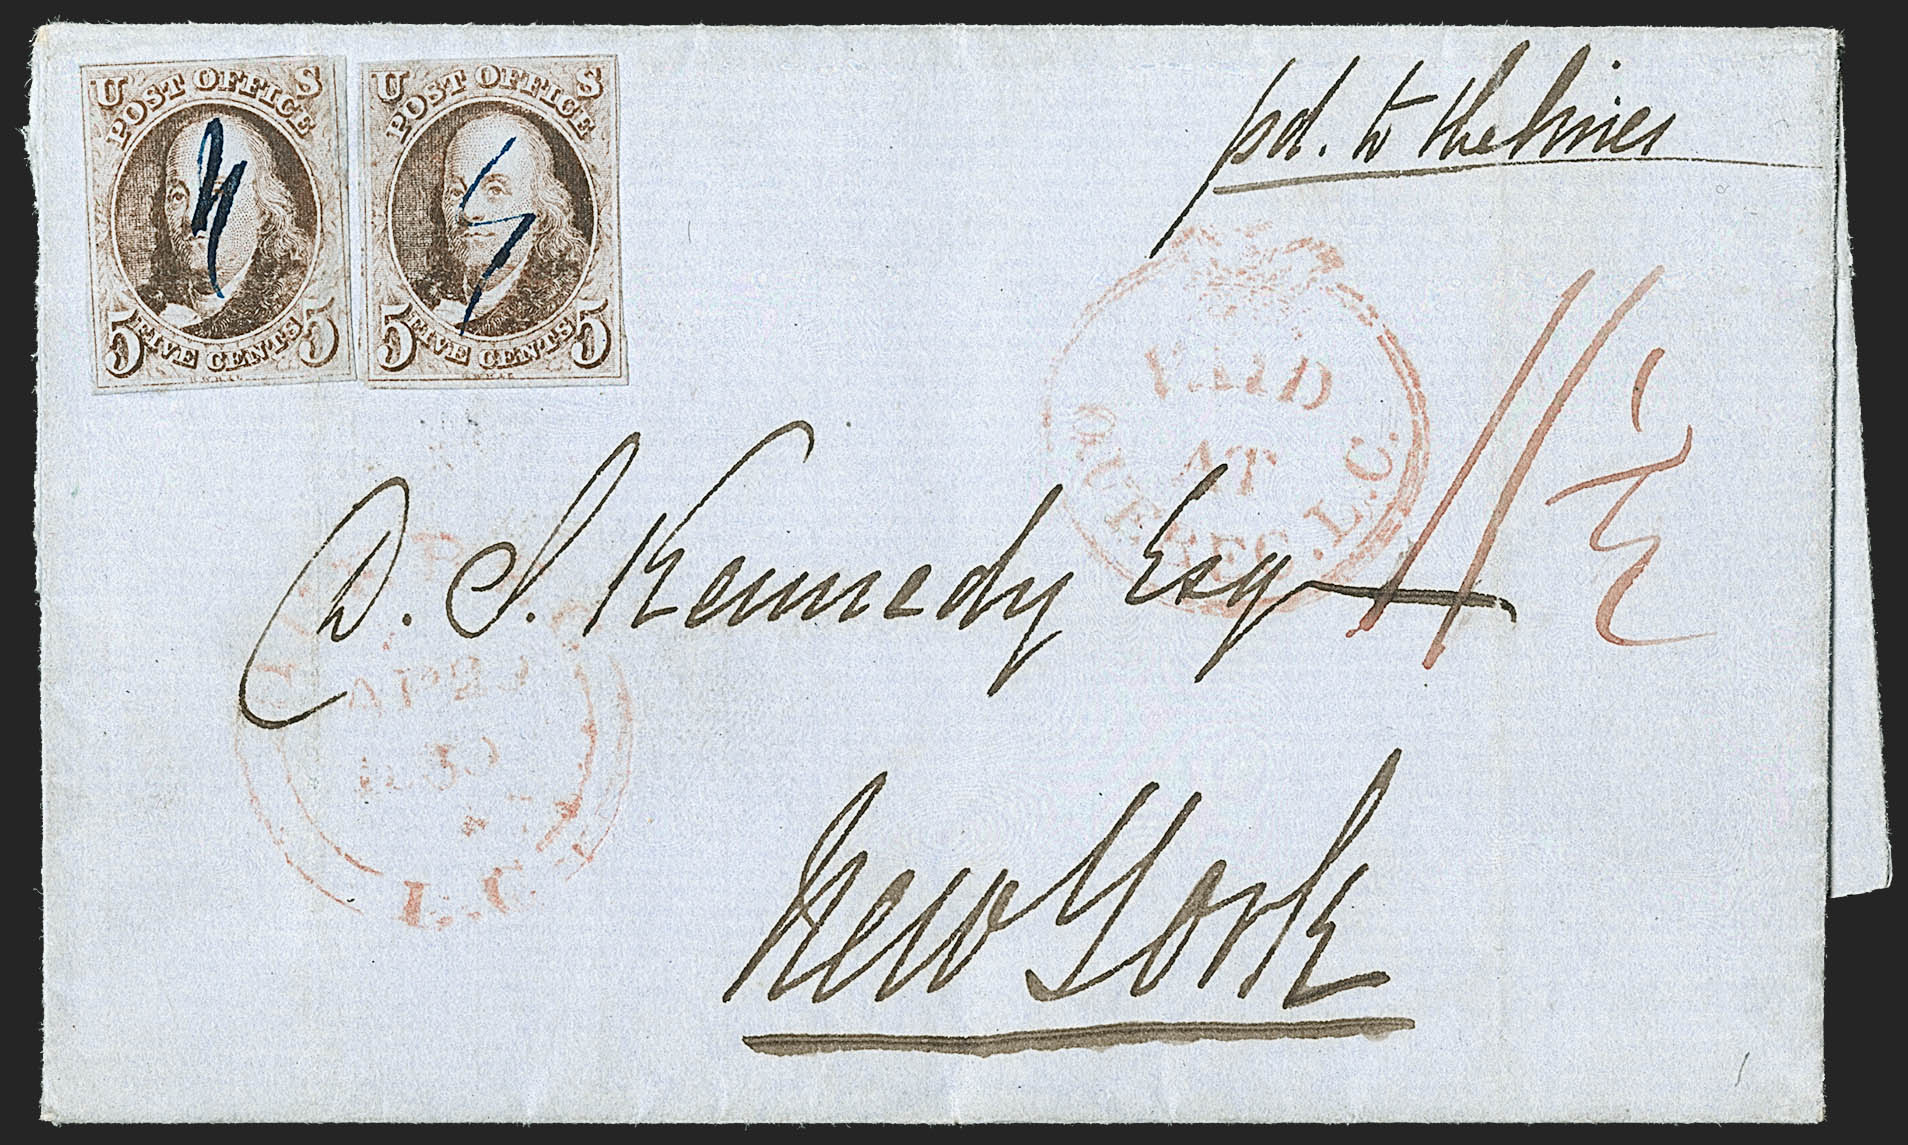 U S
POST OFFICE
5 FIVE CENTS 5
U S
POST OFFICE
5 FIVE CENTS 5
pd. to the lines
PAID
AT
QUEBEC. L.C.
11 1/2
D. S. Kennedy Esq
AP
L.C.
New York